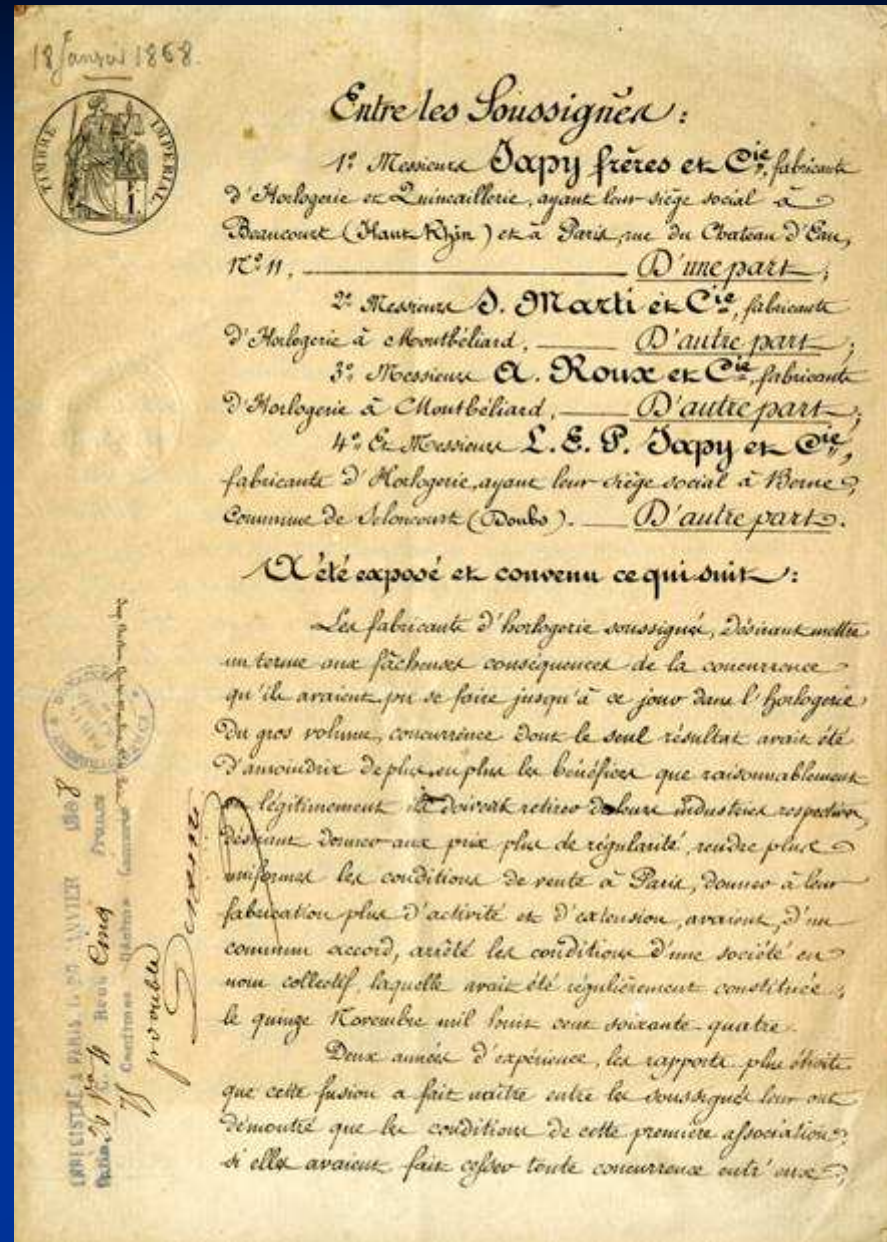 18 Janvier 1868.
TIMBRE IMPERIAL
Entre les Soussignés :
1º Messieurs Japy frères et Cie, fabricants
d'Horlogerie et Quincaillerie, ayant leur siège social à
Beaucourt (Haut Rhin) et à Paris, rue du Chateau d'Eau,
Nº 11, D'une part ;
2º Messieurs S. Marti et Cie, fabricants
d'Horlogerie à Montbéliard, D'autre part ;
3º Messieurs A. Roux et Cie, fabricants
d'Horlogerie à Montbéliard, D'autre part ;
4º Et Messieurs L. E. P. Japy et Cie,
fabricants d'Horlogerie, ayant leur siège social à Berne,
Commune de Seloncourt (Doubs). D'autre part.
A été exposé et convenu ce qui suit :
Les fabricants d'horlogerie soussignés, désirant mettre
un terme aux fâcheuses conséquences de la concurrence
qu'ils avaient pu se faire jusqu'à ce jour dans l'horlogerie
du gros volume, concurrence dont le seul résultat avait été
d'amoindrir de plus en plus les bénéfices que raisonnablement
légitimement ils doivent retirer de leurs industries respectives,
désirant donner aux prix plus de régularité, rendre plus
uniformes les conditions de vente à Paris, donner à leur
fabrication plus d'activité et d'extension, avaient, d'un
commun accord, arrêté les conditions d'une société en
nom collectif, laquelle avait été régulièrement constituée,
le quinze Novembre mil huit cent soixante-quatre.
Deux années d'expérience, les rapports plus étroits
que cette fusion a fait naître entre les soussignés leur ont
démontré que les conditions de cette première association,
si elles avaient fait cesser toute concurrence entr'eux,
ENREGISTRÉ A PARIS LE 20 JANVIER 1868
Reçu Cinq Francs
Centimes Décimes